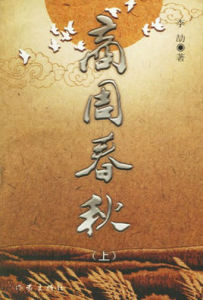 李劼◉著
商周春秋
(上)
作家出版社